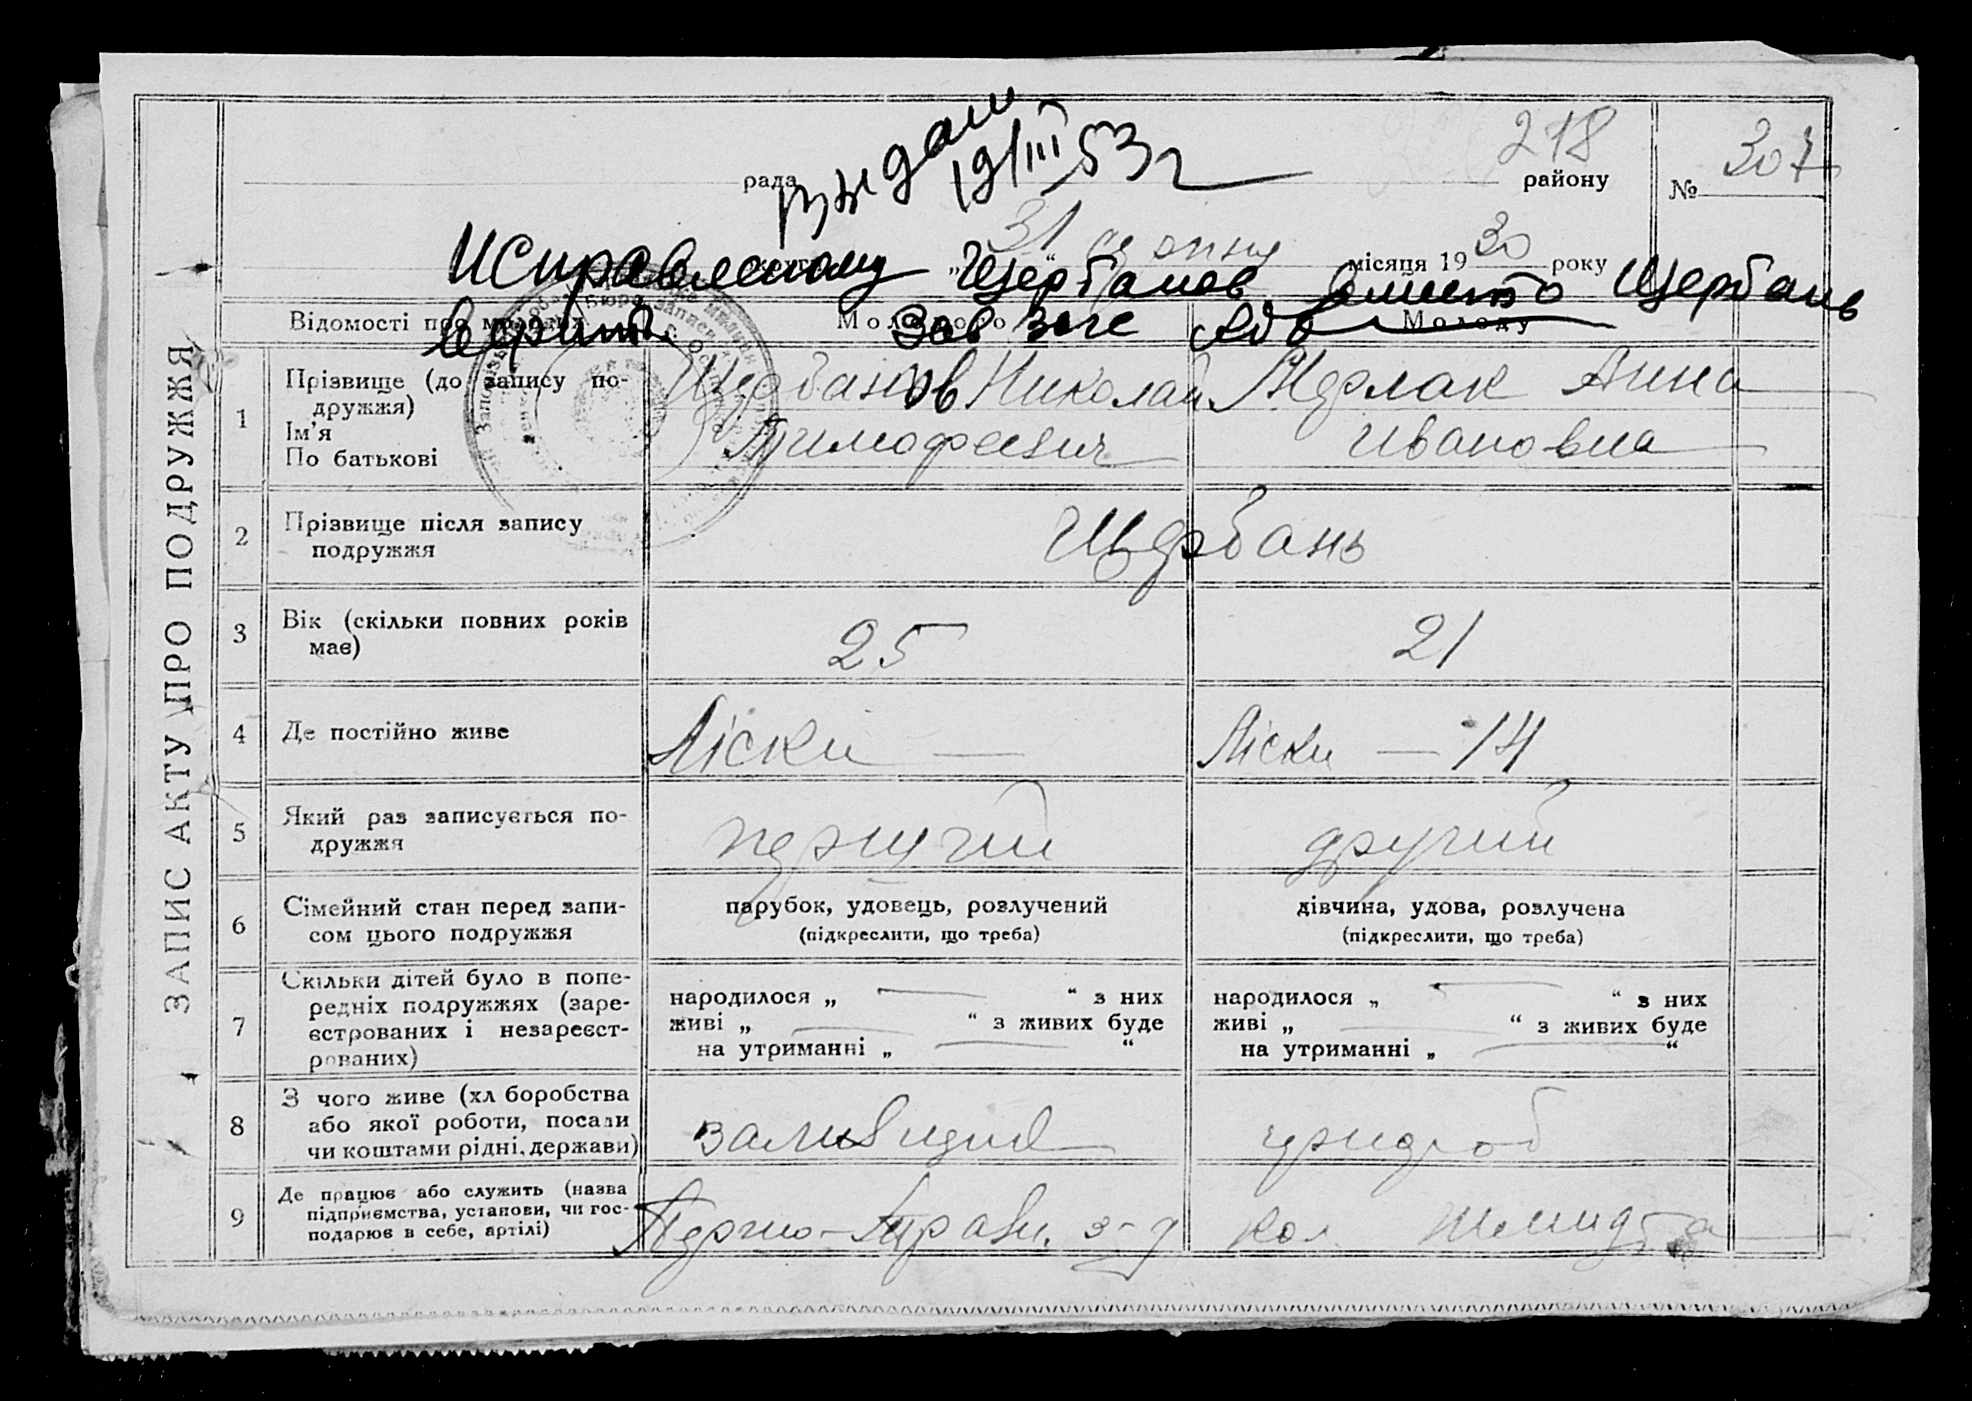 ЗАПИС АКТУ ПРО ПОДРУЖЖЯ
19/III 53 г
218
рада району
№ 307
31 серпня місяця 1930 року
Исправленному Щербанов вместо Щербань
верить Зав
Відомості про
Молодого
Молоду
1
Прізвище (до запису по-
дружжя)
Ім’я
По батькові
Щербанов Николай
Тимофеевич
Анна
Ивановна
2
Прізвище після запису
подружжя
Щербань
3
Вік (скільки повних років
має)
25
21
4
Де постійно живе
Ліски —
Ліски — 14
5
Який раз записується по-
дружжя
перший
другий
6
Сімейний стан перед запи-
сом цього подружжя
парубок, удовець, розлучений
(підкреслити, що треба)
дівчина, удова, розлучена
(підкреслити, що треба)
7
Скільки дітей було в попе-
редніх подружжях (заре-
єстрованих і незареєст-
рованих)
народилося „ — “ з них
живі „ — “ з живих буде
на утриманні „ — “
народилося „ — “ з них
живі „ — “ з живих буде
на утриманні „ — “
8
З чого живе (хл боробства
або якої роботи, посади
чи коштами рідні, держави)
чорнороб
9
Де працює або служить (назва
підприємства, установи, чи гос-
подарює в себе, артілі)
з-д
кол. Шмидта